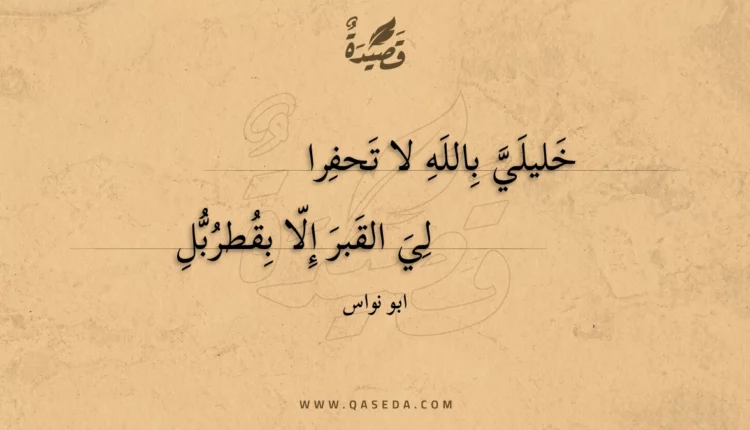 قَصِيْدَةٌ
خَليلَيَّ بِاللَهِ لا تَحفِرا
لِيَ القَبرَ إِلّا بِقُطرُبُّلِ
ابو نواس
WWW.QASEDA.COM